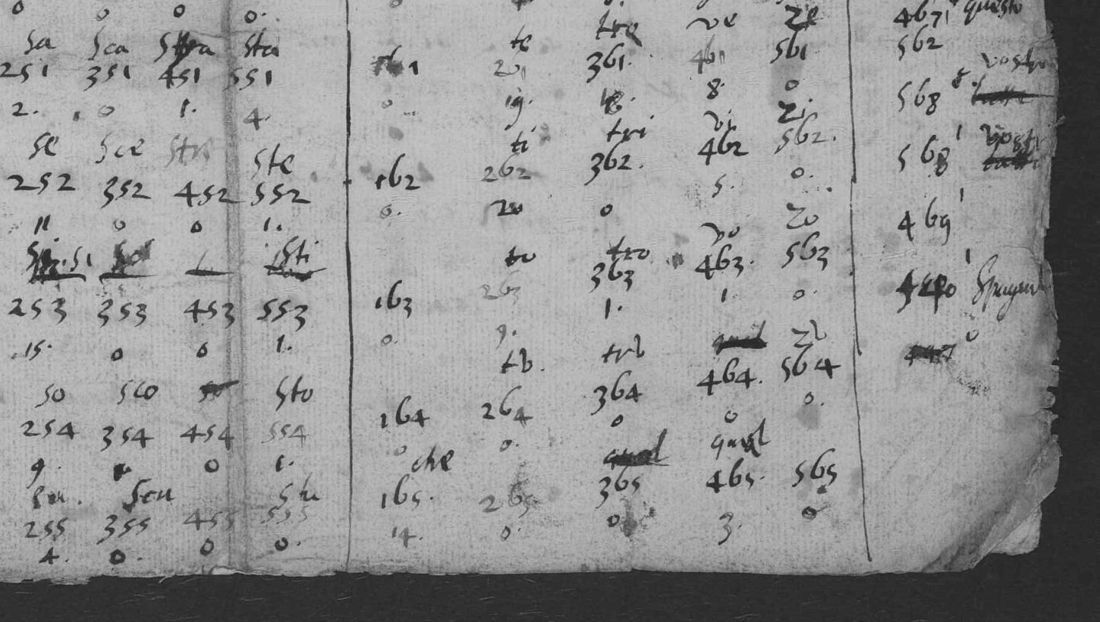 0 0 0 0. 0 0. 0
sa sca sta te tre ve ze 4671 questo
251 351 451 551 161 261 361. 461 561 562
2. 0 1. 4. 0 19. 18. 8. 0 568 8 vostro
se sce ste ti tri vi zi. 568 1 vostri
252 352 452 552 162 262 362. 462 562.
11 0 0 1. 0. 20 0 5. 0.
si sti to tro vo zo 469 1
253 353 453 553 163 263 363 463. 563
15. 0 0 1. 0. 9. 1. 1. 0. 1
so sco sto tu. tru zu 447 0
254 354 454 554 164 264 364 464. 564
9. 0 1. 0 0. 0 0 0.
su. scu stu che qual
255 355 455 555 165. 265 365 465. 565
4. 0. 0 0. 14. 0. 0 3. 0